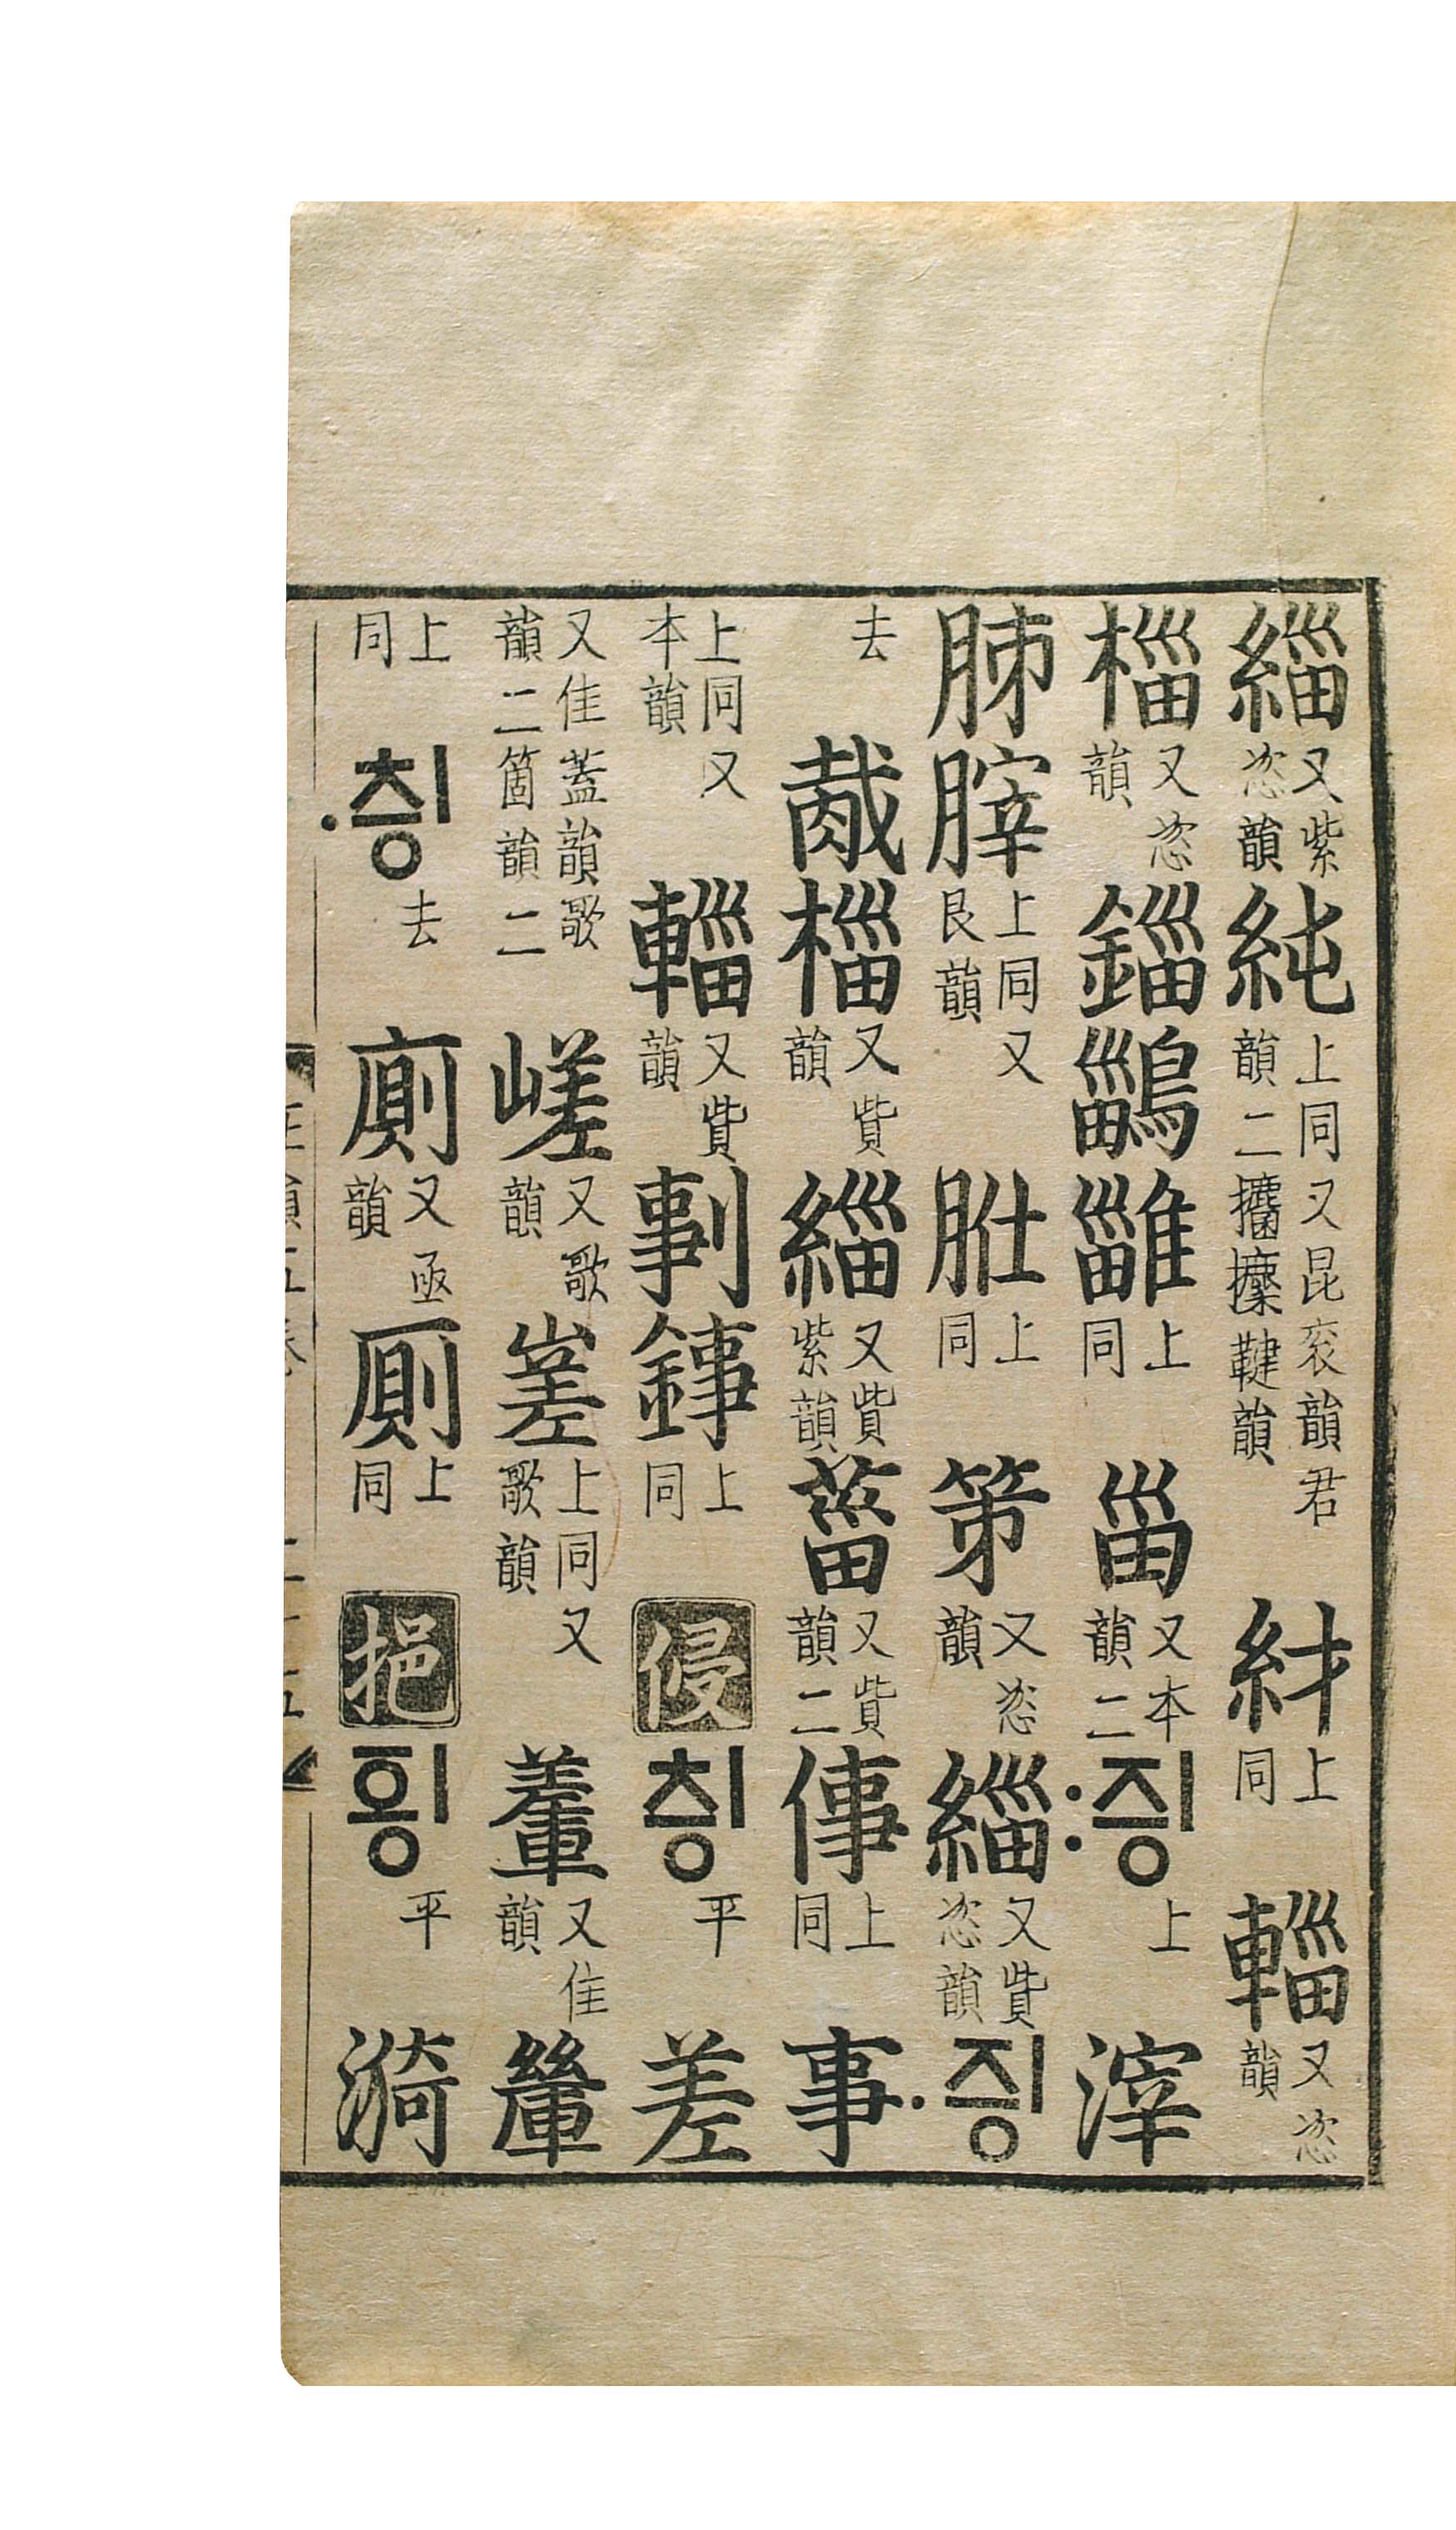 緇又紫恣韻純上同又昆衮韻君韻二攟攗鞬韻紂上同輜又恣韻
椔又恣韻錙鶅雖上同甾又本韻二:즹上滓
胏䏁上同又艮韻胙上同笫又恣韻緇又貲恣韻·즹
去胾椔又貲韻緇又貲紫韻菑又貲韻二倳上同事
上同又本韻輜又貲韻剚䥙上同侵칑平差
又佳蓋韻歌韻二箇韻二嵯又歌韻嵳上同又歌韻䡨又佳韻輺
上同·칑去廁又亟韻厠上同挹힁平漪